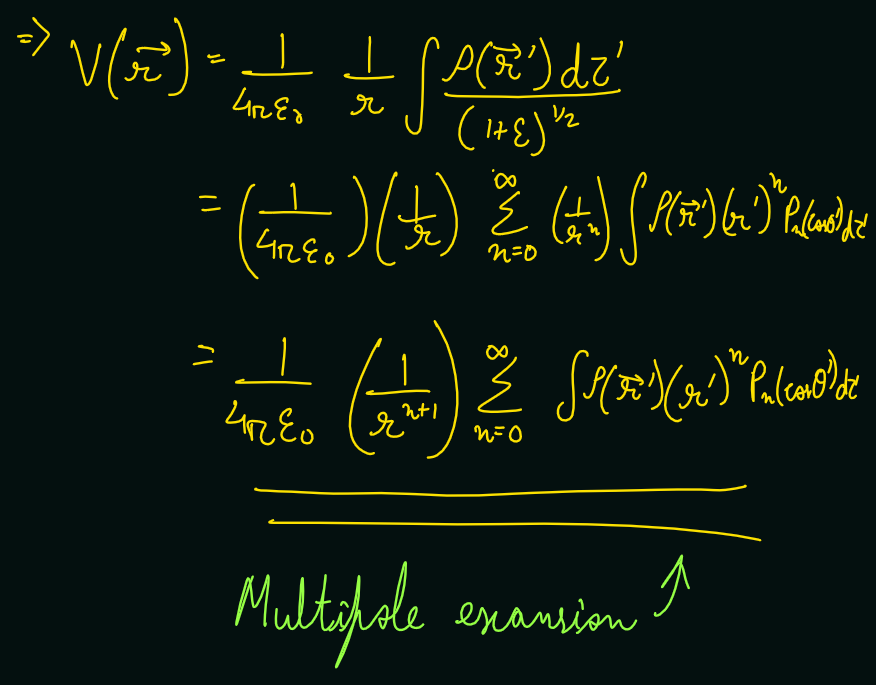 ⇒ V(r⃗) = 1/(4πε₀) 1/r ∫ ρ(r⃗')dτ'/(1+ε)^(1/2)
= (1/(4πε₀)) (1/r) ∑_{n=0}^{∞} (1/r^n) ∫ ρ(r⃗')(r')^n P_n(cosθ')dτ'
= 1/(4πε₀) (1/r^(n+1)) ∑_{n=0}^{∞} ∫ρ(r⃗')(r')^n P_n(cosθ')dτ'
Multipole exansion ↑